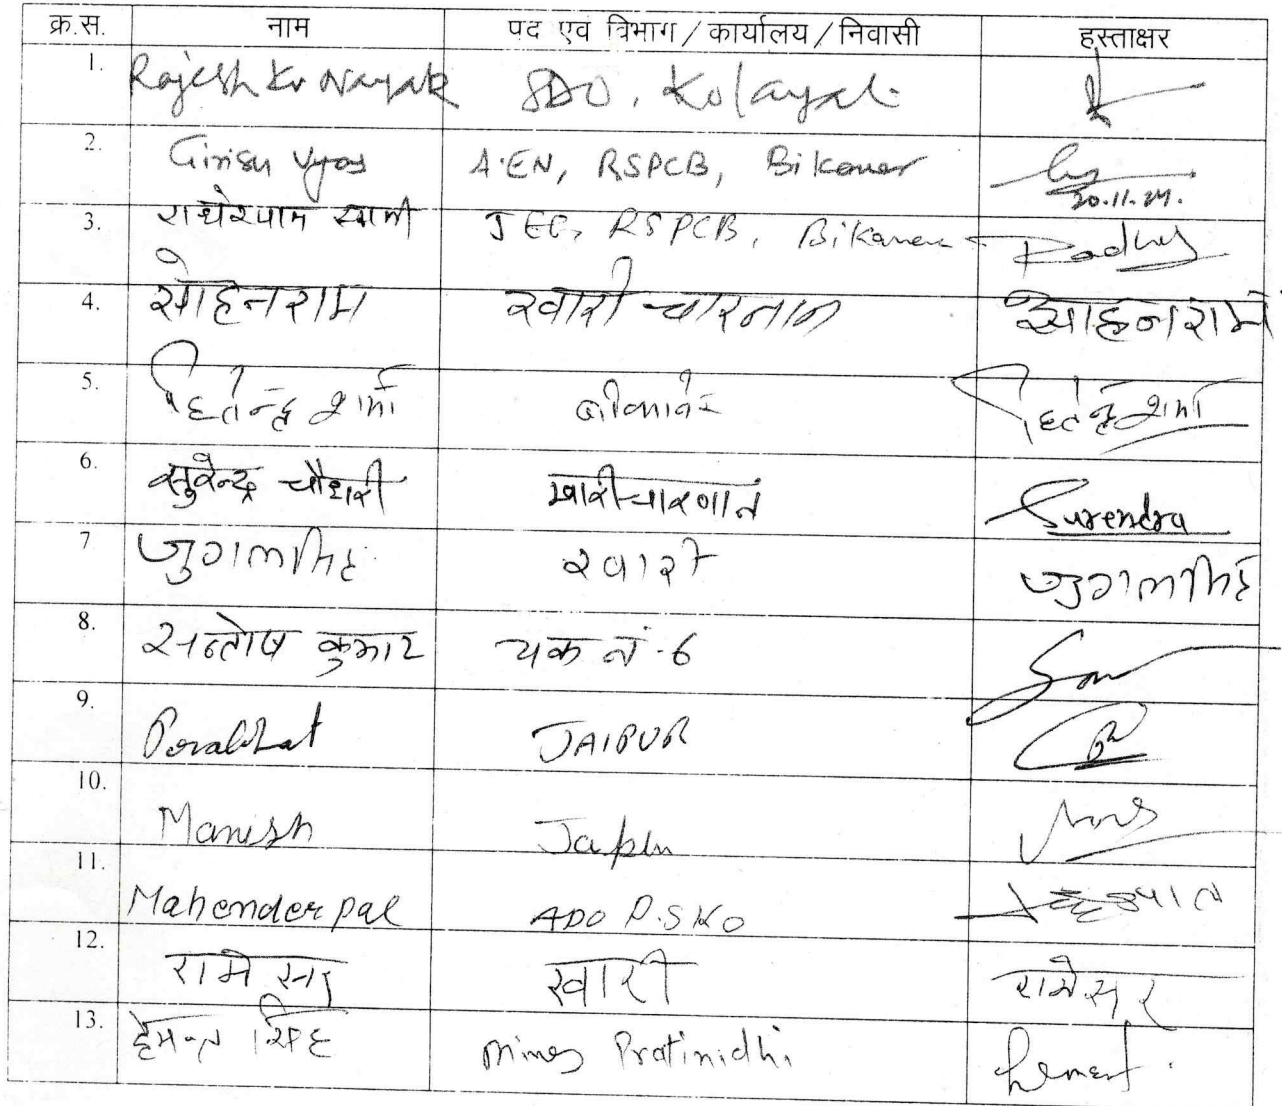 क्र.स. नाम पद एवं विभाग/कार्यालय/निवासी हस्ताक्षर
1. Rajesh Kr Nayak SDO, Kolayat
2. Girish Vyas A.EN, RSPCB, Bikaner 20.11.24.
3. राधेश्याम स्वामी JEE, RSPCB, Bikaner Radhey
4. सोहनराम खारी चारनान सोहनराम
5. हितेन्द्र शर्मा बीकानेर हितेन्द्र शर्मा
6. सुरेन्द्र चौधरी खारी चारणान Surendra
7 जुगलसिंह खारी जुगलसिंह
8. सन्तोष कुमार चक नं.6
9. Porabhat JAIPUR
10. Manish Jaipur
11. Mahenderpal ADO P.S KO
12. खारी रामेसर
13. हेमन्त सिंह Mines Pratinidhi Hemant